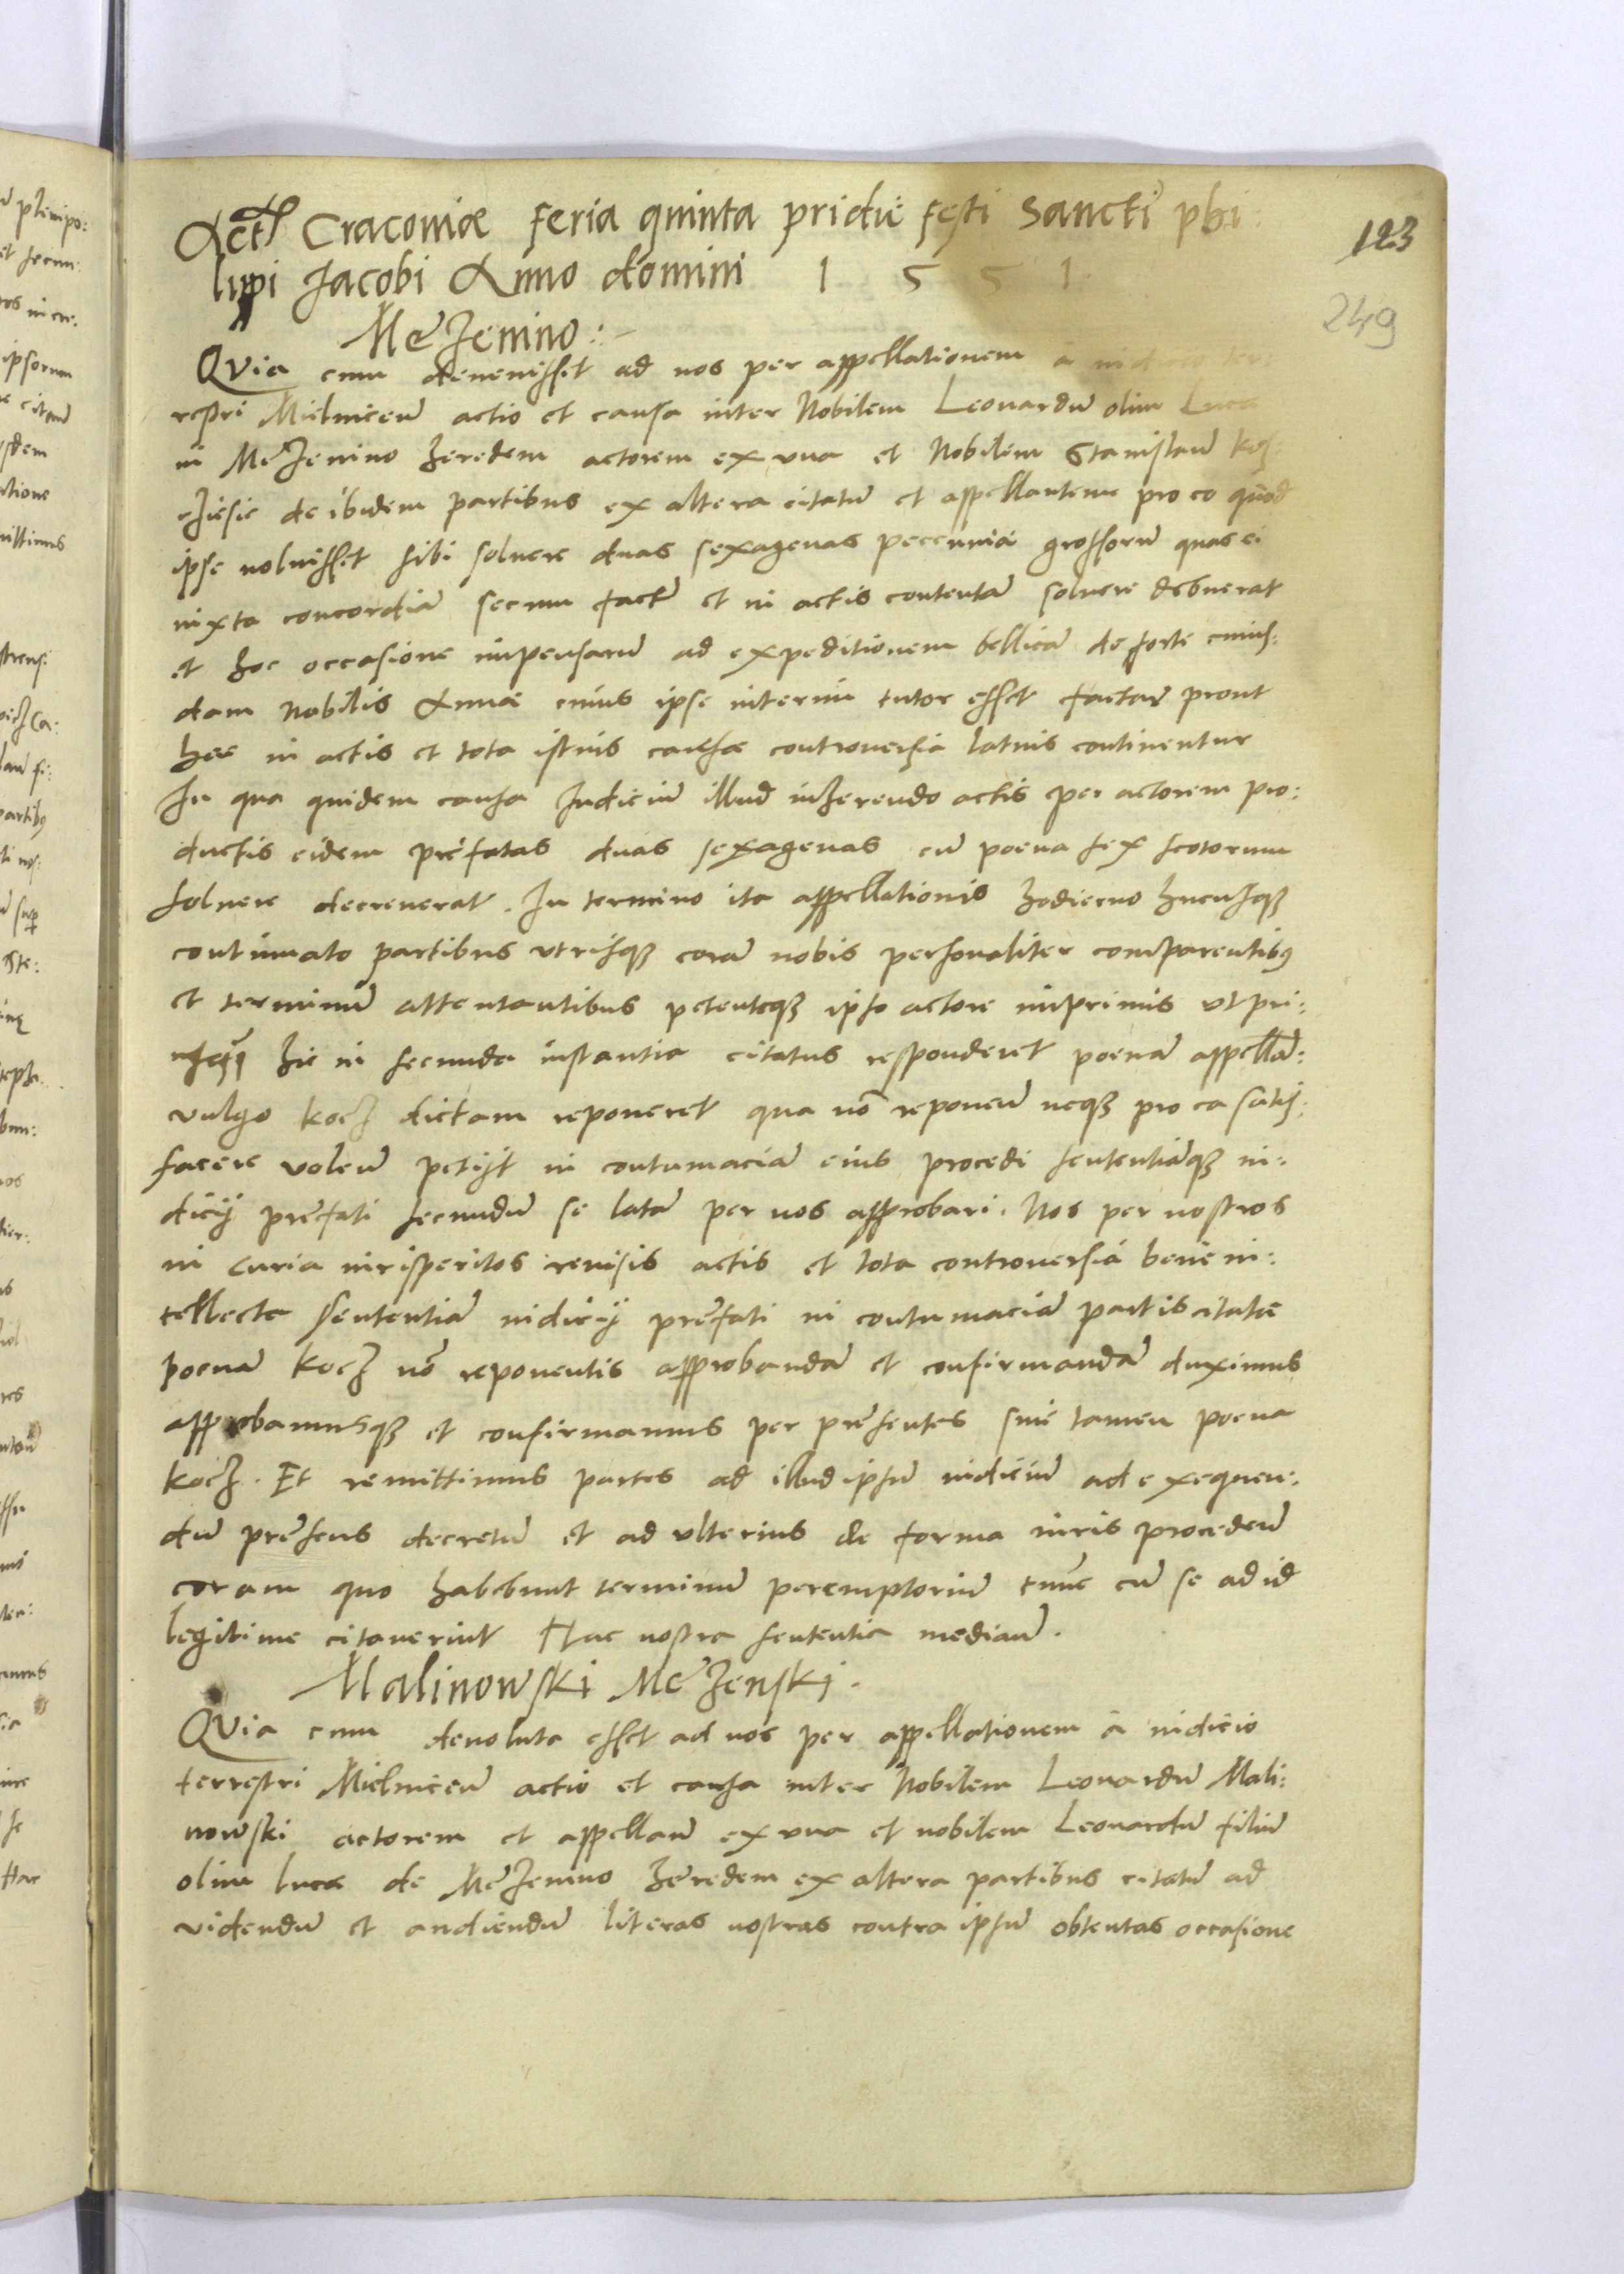 Act Cracoviæ feria quinta pridie festi Sancti phi:
lippi Jacobi Anno domini 1 5 5 1
123
249
Meżenino:
Quia cum devenisset ad nos per appellationem à iudicio ter
restri Mielniceñ actio et causa inter Nobilem Leonardũ olim Luca
in Meżenino heredem actorem ex una et Nobilem Stanislaũ
de ibidem partibus ex altera citatũ et appellantem pro eo quod
ipse noluisset sibi soluere duas sexagenas pecuniæ grossorũ quas ei
iuxta concordiã secum factã et in actis contentã soluere debuerat
et hoc occasione impensarũ ad expeditionem bellicã de sorte cuius:
dam Nobilis Annæ cuius ipse interim tutor esset factarũ prout
hec in actis et tota istius causæ controversia latius continentur
In qua quidem causa Iudiciũ illud inherendo actis per actorem pro:
ductis eidem prefatas duas sexagenas cũ poena sex scotorum
soluere decreverat. In termino itaq appellationis hodierno hucusq;
continuato partibus utrisq; corã nobis personaliter comparentibus
et terminũ attentantibus petenteq; ipso actore inprimis ut pri:
usq̃ hic in secunda instantia citatus responderet poenã appellã:
vulgo kocz dictam reponeret qua nõ reponeñ neq; pro ea satis:
facere voleñ petijt in contumaciã eius procedi sententiãq; iu:
dicij prefati secundũ se latã per nos approbari. Nos per nostros
in Curia iurisperitos revisis actis et tota controversia bene in:
tellecta Sententiã iudicij prefati in contumaciã partis citatæ
poenã kocz nõ reponentis approbandã et confirmandã duximus
approbamusq; et confirmamus per presentes sine tamen poena
kocz. Et remittimus partes ad illud ipsũ iudiciũ ad exequen:
dũ presens decretũ et ad ulterius de forma iuris procedeñ
coram quo habebunt terminũ peremptoriũ tunc cũ se ad id
legitime citaverint Hac nostra sententia mediañ.
Malinowski Meżenski.
Quia cum devoluta esset ad nos per appellationem à iudicio
terrestri Mielniceñ actio et causa inter Nobilem Leonardũ Mali:
nowski actorem et appellañ ex una et nobilem Leonardũ filiũ
olim Luca de Meżenino heredem ex altera partibus citatũ ad
videndũ et audiendũ literas nostras contra ipsũ obtentas occasione